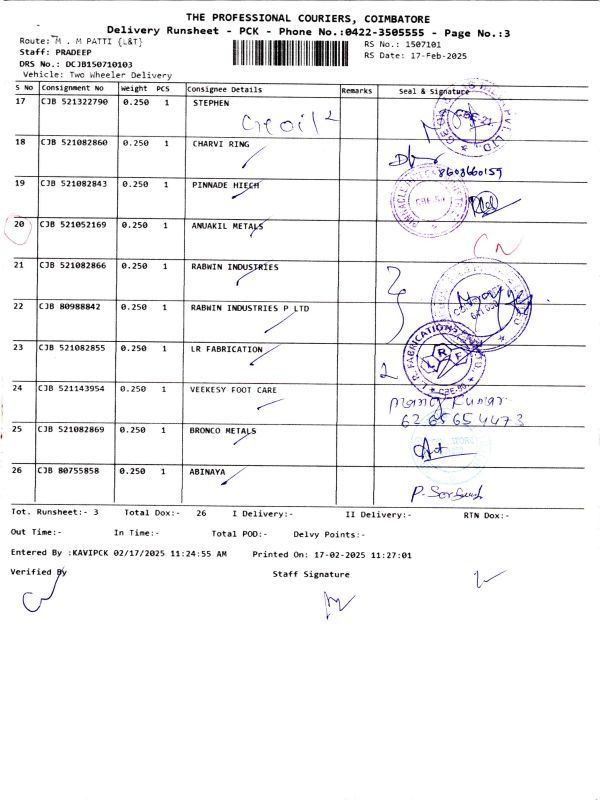 THE PROFESSIONAL COURIERS, COIMBATORE
Delivery Runsheet - PCK - Phone No.:0422-3505555 - Page No.:3
Route: M . M PATTI {L&T}
RS No.: 1507101
Staff: PRADEEP
RS Date: 17-Feb-2025
DRS No.: DCJB150710103
Vehicle: Two Wheeler Delivery
S No Consignment No Weight PCS Consignee Details Remarks Seal & Signature
17 CJB 521322790 0.250 1 STEPHEN
18 CJB 521082860 0.250 1 CHARVI RING
8608660159
19 CJB 521082843 0.250 1 PINNADE HIECH
20 CJB 521052169 0.250 1 ANUAKIL METALS
CN
21 CJB 521082866 0.250 1 RABWIN INDUSTRIES
22 CJB 80988842 0.250 1 RABWIN INDUSTRIES P LTD
23 CJB 521082855 0.250 1 LR FABRICATION
L R F
24 CJB 521143954 0.250 1 VEEKESY FOOT CARE
25 CJB 521082869 0.250 1 BRONCO METALS
26 CJB 80755858 0.250 1 ABINAYA
Tot. Runsheet:- 3 Total Dox:- 26 I Delivery:- II Delivery:- RTN Dox:-
Out Time:- In Time:- Total POD:- Delvy Points:-
Entered By :KAVIPCK 02/17/2025 11:24:55 AM Printed On: 17-02-2025 11:27:01
Verified By Staff Signature